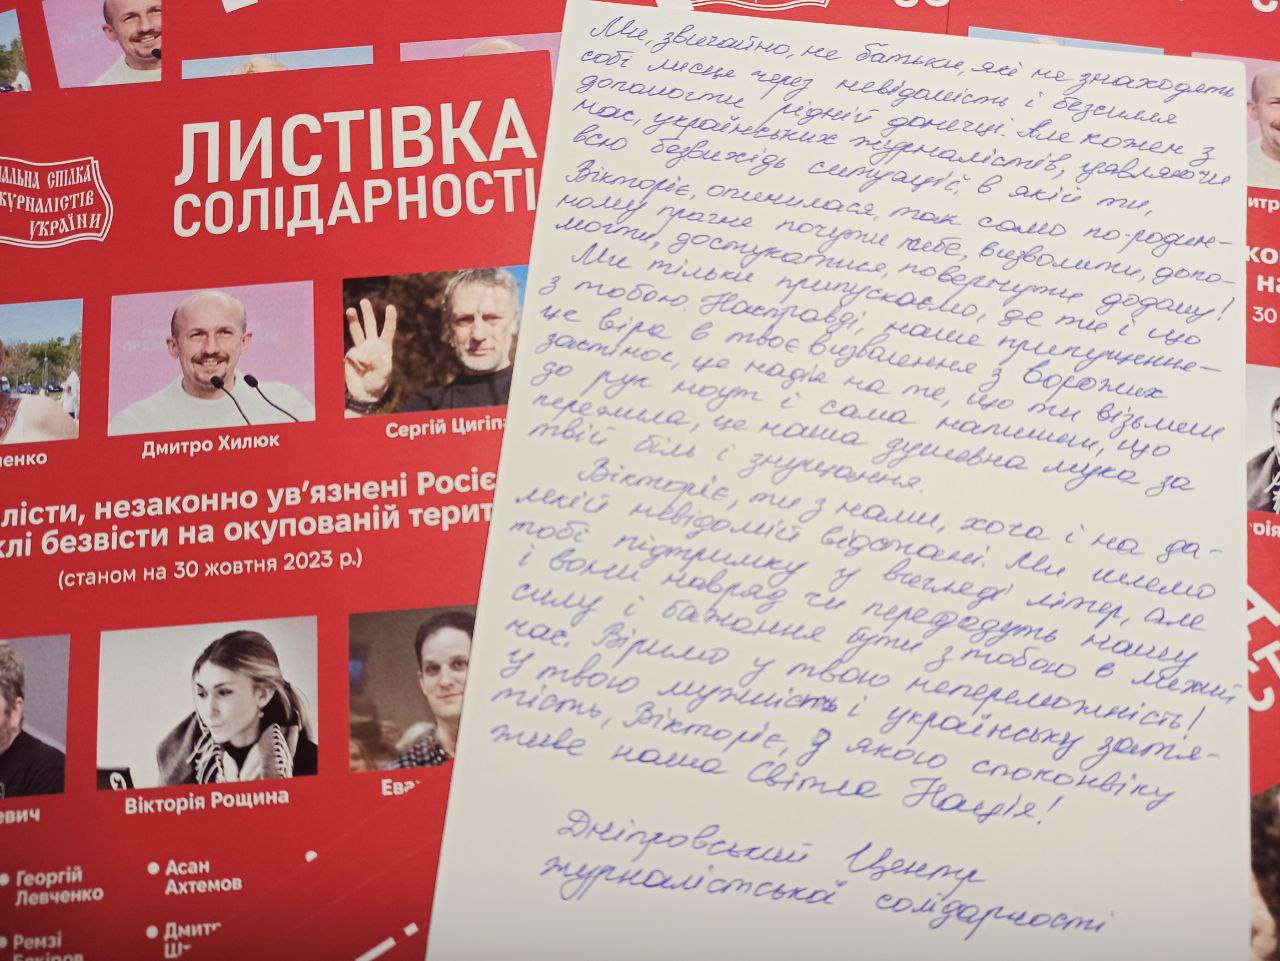 АЛЬНА СПІЛКА
ЖУРНАЛІСТІВ
УКРАЇНИ
ЛИСТІВКА
СОЛІДАРНОСТІ
енко
Дмитро Хилюк
Сергій Цигіпа
лісти, незаконно ув’язнені Росіє
клі безвісти на окупованій терит
(станом на 30 жовтня 2023 р.)
евич
Вікторія Рощина
Ева
Георгій
Левченко
Асан
Ахтемов
Ремзі
Бекіров
Дмит
Ми, звичайно, не батьки, які не знаходять
собі місця через невідомість і безсилля
допомогти рідній донечці. Але кожен з
нас, українських журналістів, уявляючи
всю безвихідь ситуації, в якій ти,
Вікторіє, опинилася, так само по-родин-
ному прагне почути тебе, визволити, допо-
могти, достукатися, повернути додому!
Ми тільки припускаємо, де ти і що
з тобою. Насправді, наше припущення–
це віра в твоє визволення з ворожих
застінок, це надія на те, що ти візьмеш
до рук ноут і сама напишеш, що
пережила, це наша душевна мука за
твій біль і знущання.
Вікторіє, ти з нами, хоча і на да-
лекій невідомій відстані. Ми шлемо
тобі підтримку у вигляді літер, але
і вони навряд чи передадуть нашу
силу і бажання бути з тобою в межий
час. Віримо у твою непереможність!
У твою мужність і українську затя-
тість, Вікторіє, з якою споконвіку
живе наша Світла Нація!
Дніпровський Центр
журналістської солідарності
30